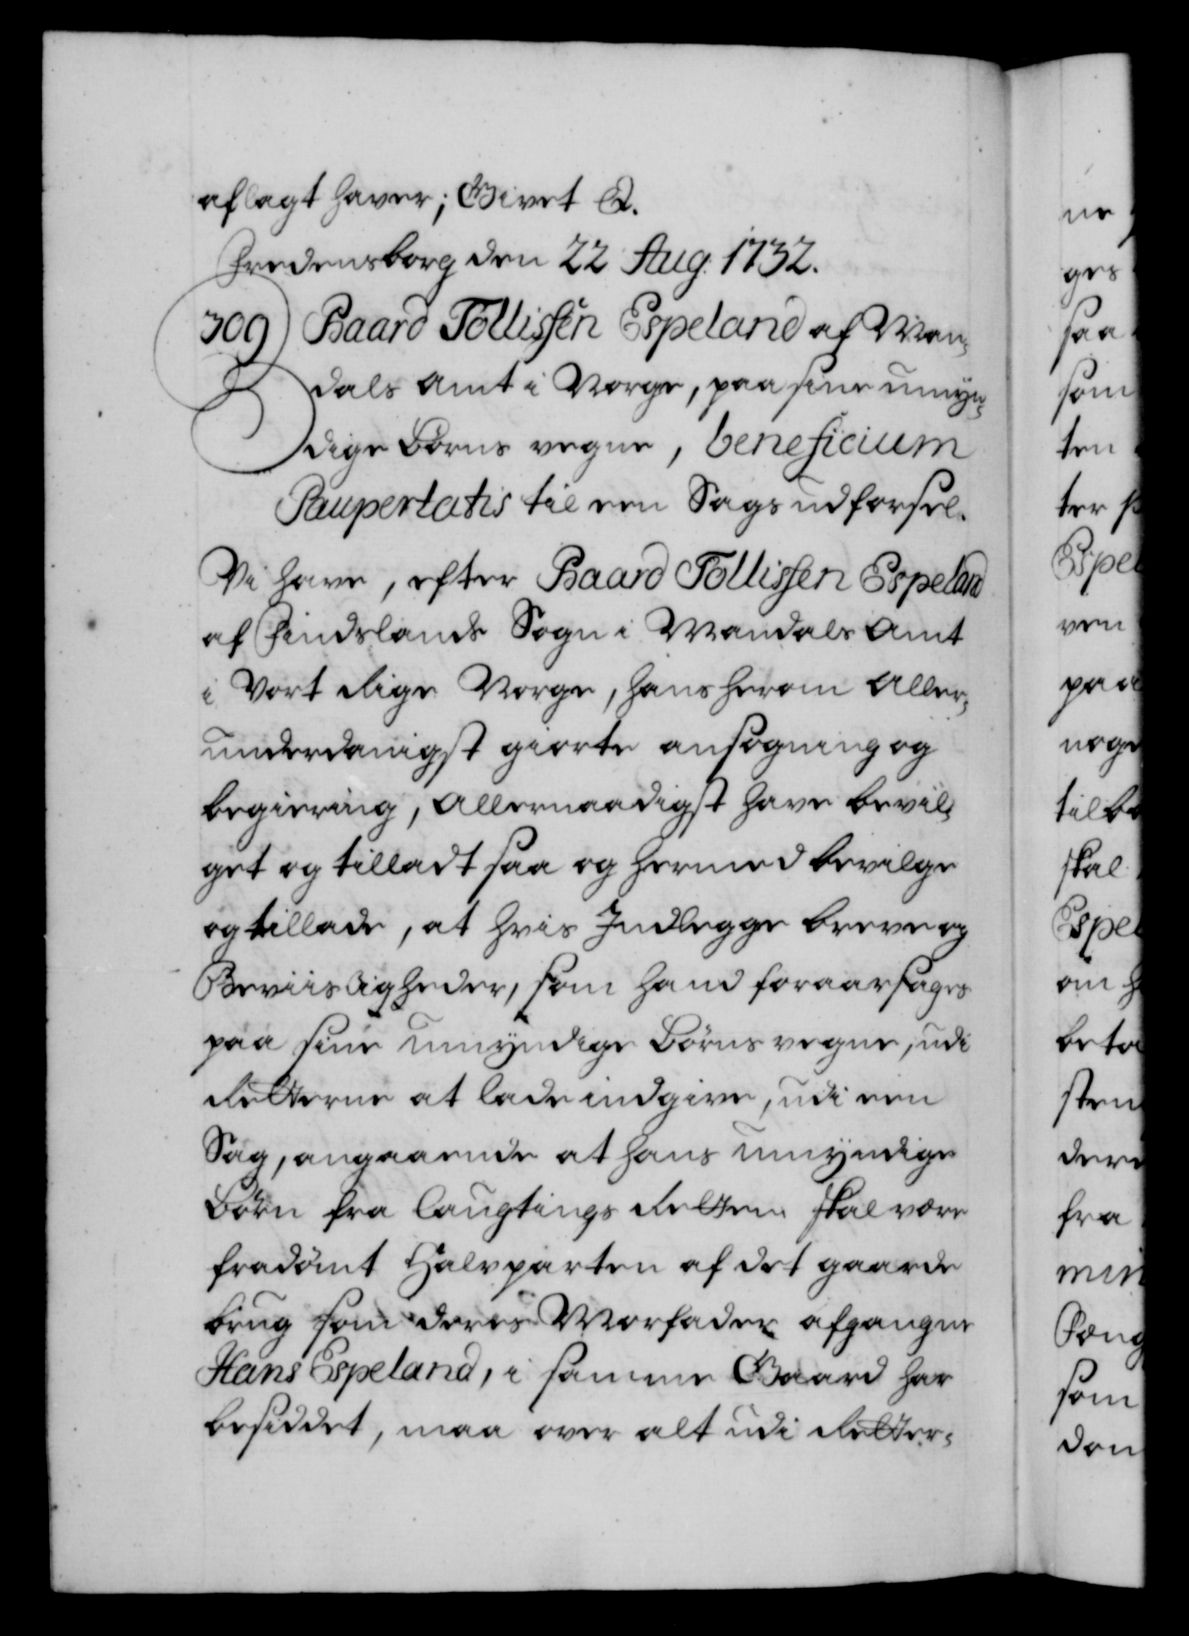 aflagt haver; Givet &.
Fredensborg den 22 Aug. 1732.
309 Baard Tollissen Espeland af Man-
dals Amt i Norge, paa sine umyn-
dige Børns vegne, beneficium
Paupertatis til een Sags udførsel.
Vi have, efter Baard Tollissen Espeland
af Findslands Sogn i Mandals Amt
i Vort Rige Norge, hans herom Aller-
underdanigst giorte ansøgning og
begiering, Allernaadigst have bevil-
get og tilladt saa og hermed bevilge
og tillade, at hvis Indlegge breve og
Beviisligheder, som hand foraarsages
paa sine umyndige Børns vegne, udi
Retterne at lade indgive, udi een
Sag, angaaende at hans umyndige
Børn fra Laugtings Retten skal være
fradømt Halvparten af det gaarde
brug som deres Morfader afgangne
Hans Espeland, i samme Gaard har
besiddet, maa over alt udi Retter-
ne
ges
saa
som
ten
ter
Espel
ven
paa
noge
tilbe
skal
Espel
om
beta
sten
dere
fra
min
som
den